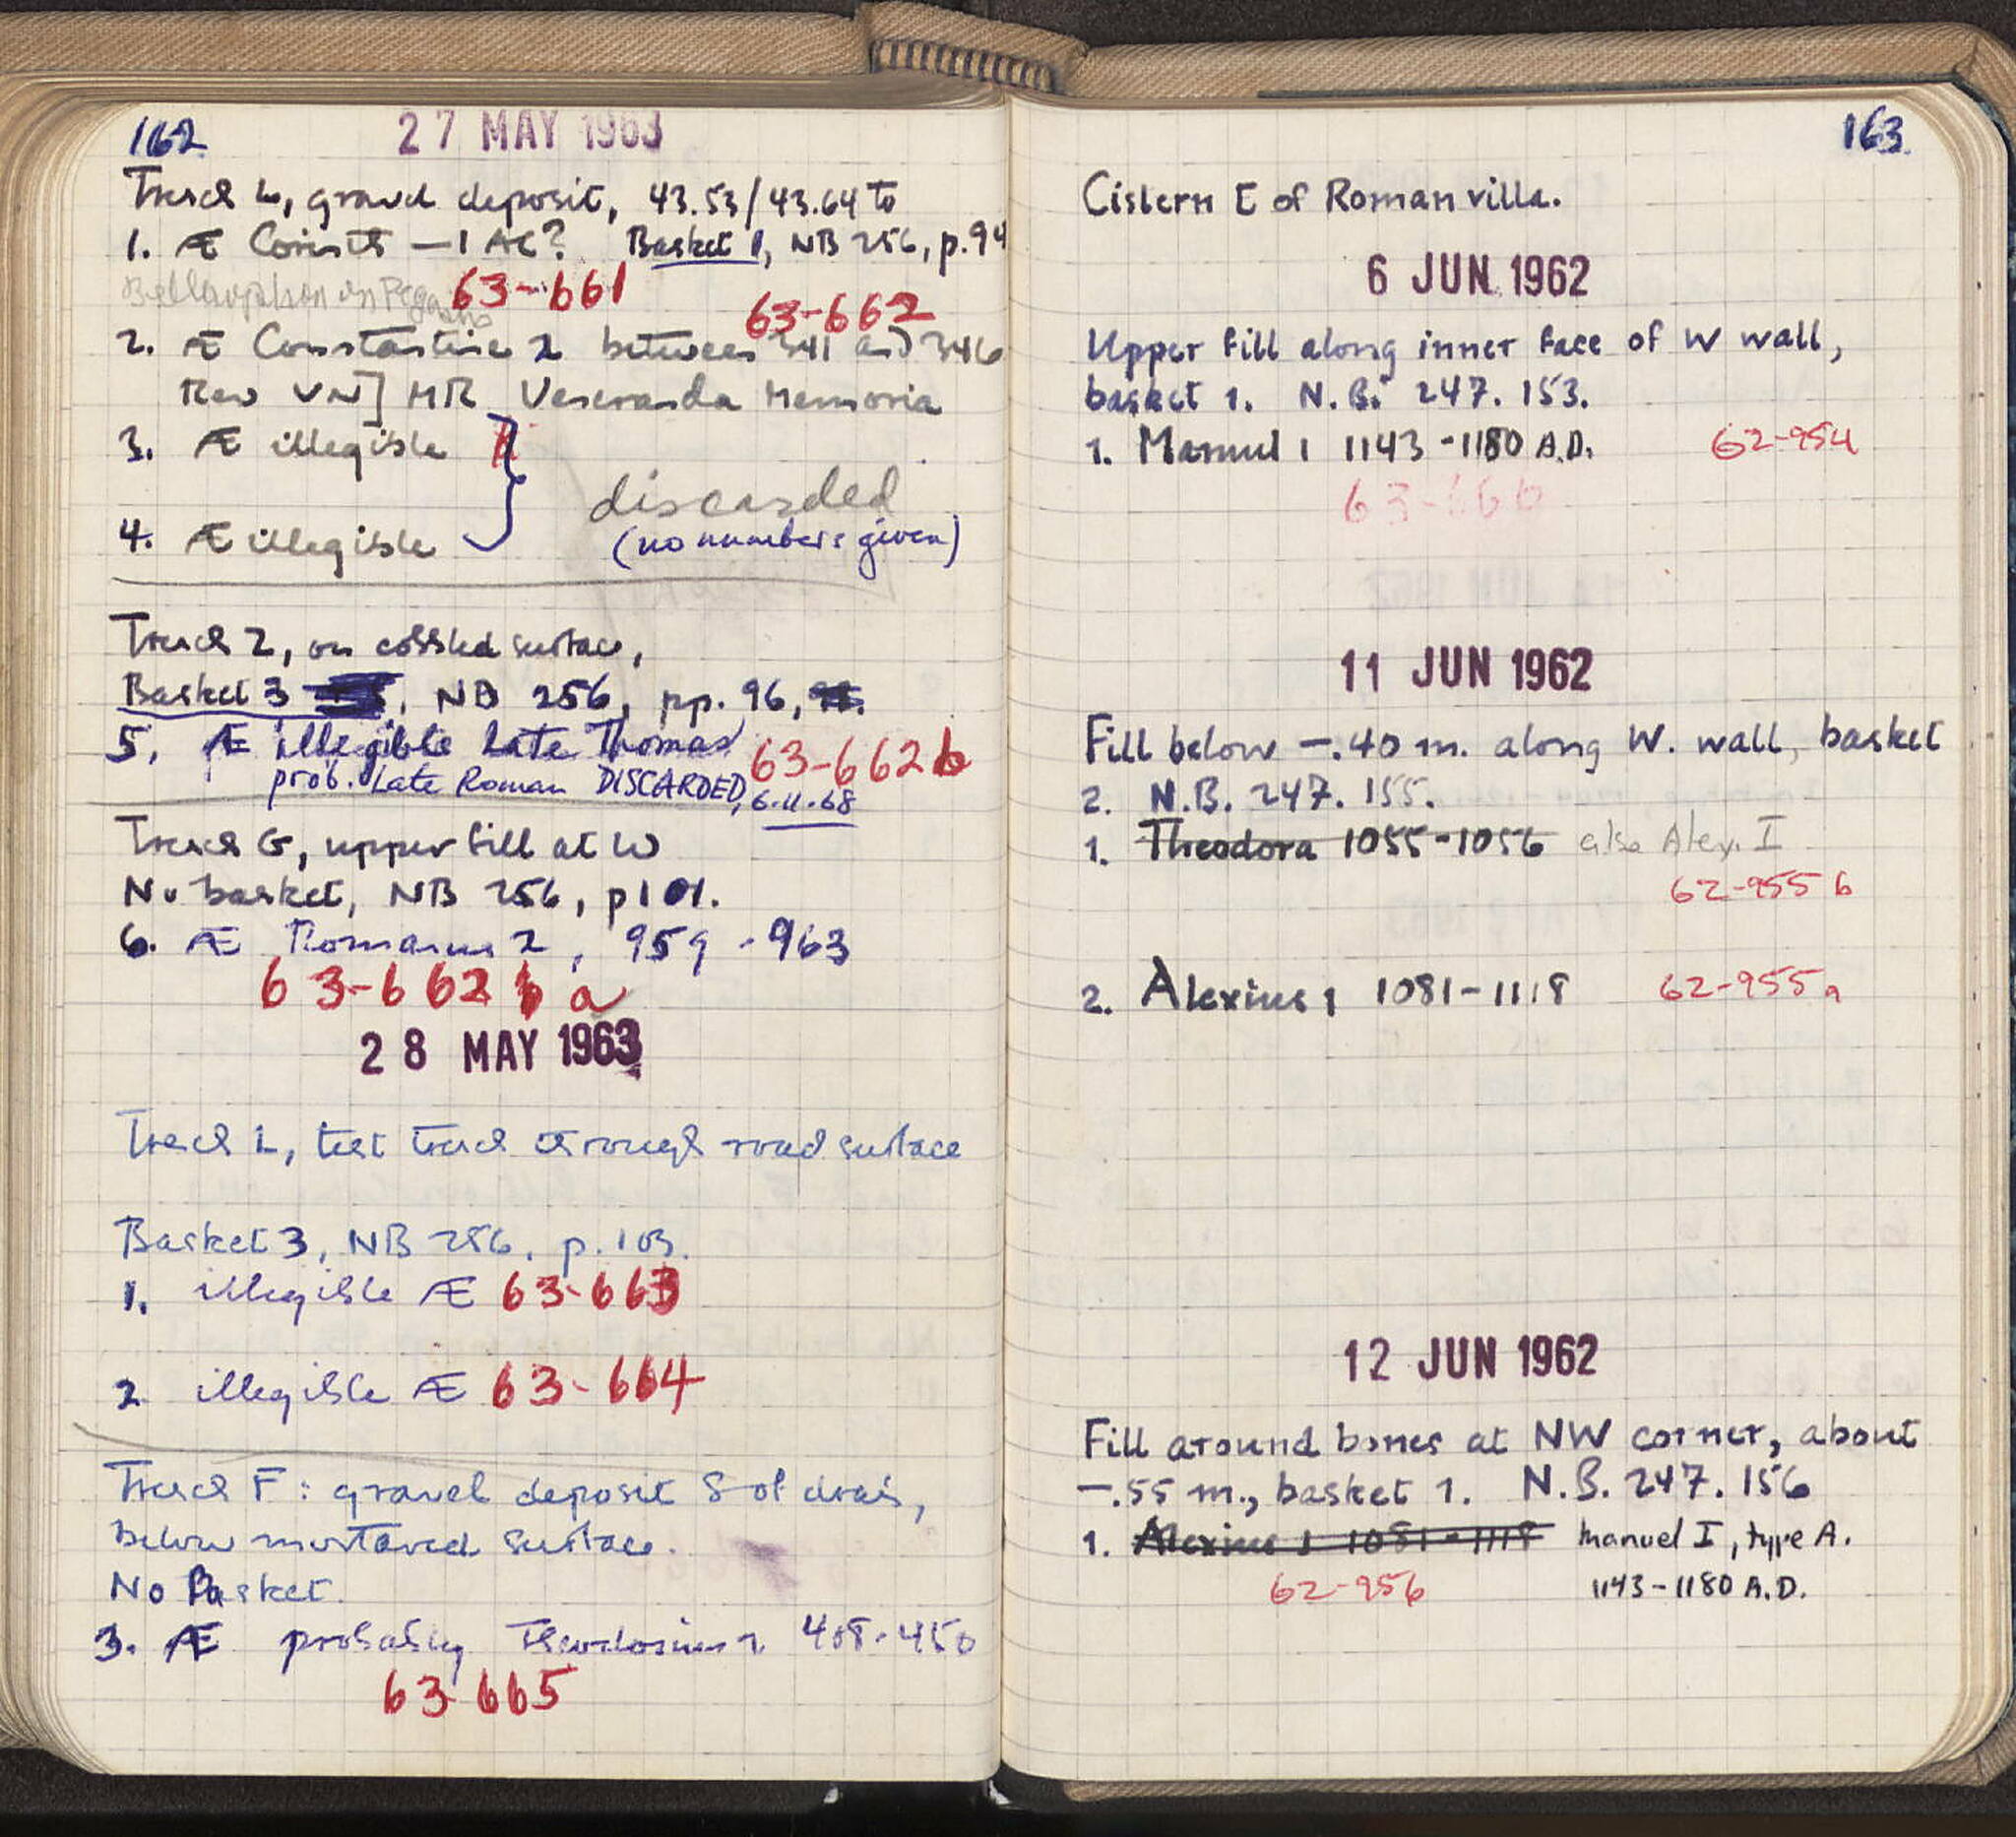 162
27 MAY 1963
Trench L, gravel deposit, 43.53/43.64 to
1. Æ Corinth — 1 AC? Basket 1, NB 256, p.94
Bellerophon on Pegasus 63-661
63-662
2. Æ Constantine 2 between 341 and 346
Rev VN] MR Veneranda Memoria
3. Æ illegible
discarded
4. Æ illegible (no numbers given)
Trench L, on cobbled surface,
Basket 3, NB 256, pp. 96,
5. Æ illegible late Thomas 63-662 b
prob. Late Roman DISCARDED, 6.11.68
Trench G, upper fill at W
No basket, NB 256, p101.
6. Æ Romanus 2, 959-963
63-662 a
28 MAY 1963
Trench L, test trench through road surface
Basket 3, NB 256, p.103.
1. illegible Æ 63-663
2 illegible Æ 63-664
Trench F: gravel deposit S of drain,
below mortared surface.
No Basket.
3. Æ probably Theodosius 2 408-450
63-665
163
Cistern E of Roman villa.
6 JUN 1962
Upper fill along inner face of W wall,
basket 1. N.B. 247. 153.
1. Manuel 1 1143-1180 A.D. 62-954
63-666
11 JUN 1962
Fill below -.40 m. along W. wall, basket
2. N.B. 247. 155.
1. Theodora 1055-1056 also Alex. I
62-955 b
2. Alexius 1 1081-1118 62-955 a
12 JUN 1962
Fill around bones at NW corner, about
-.55 m., basket 1. N.B. 247. 156
1. Alexius 1 1081-1118 Manuel I, type A.
62-956 1143-1180 A.D.